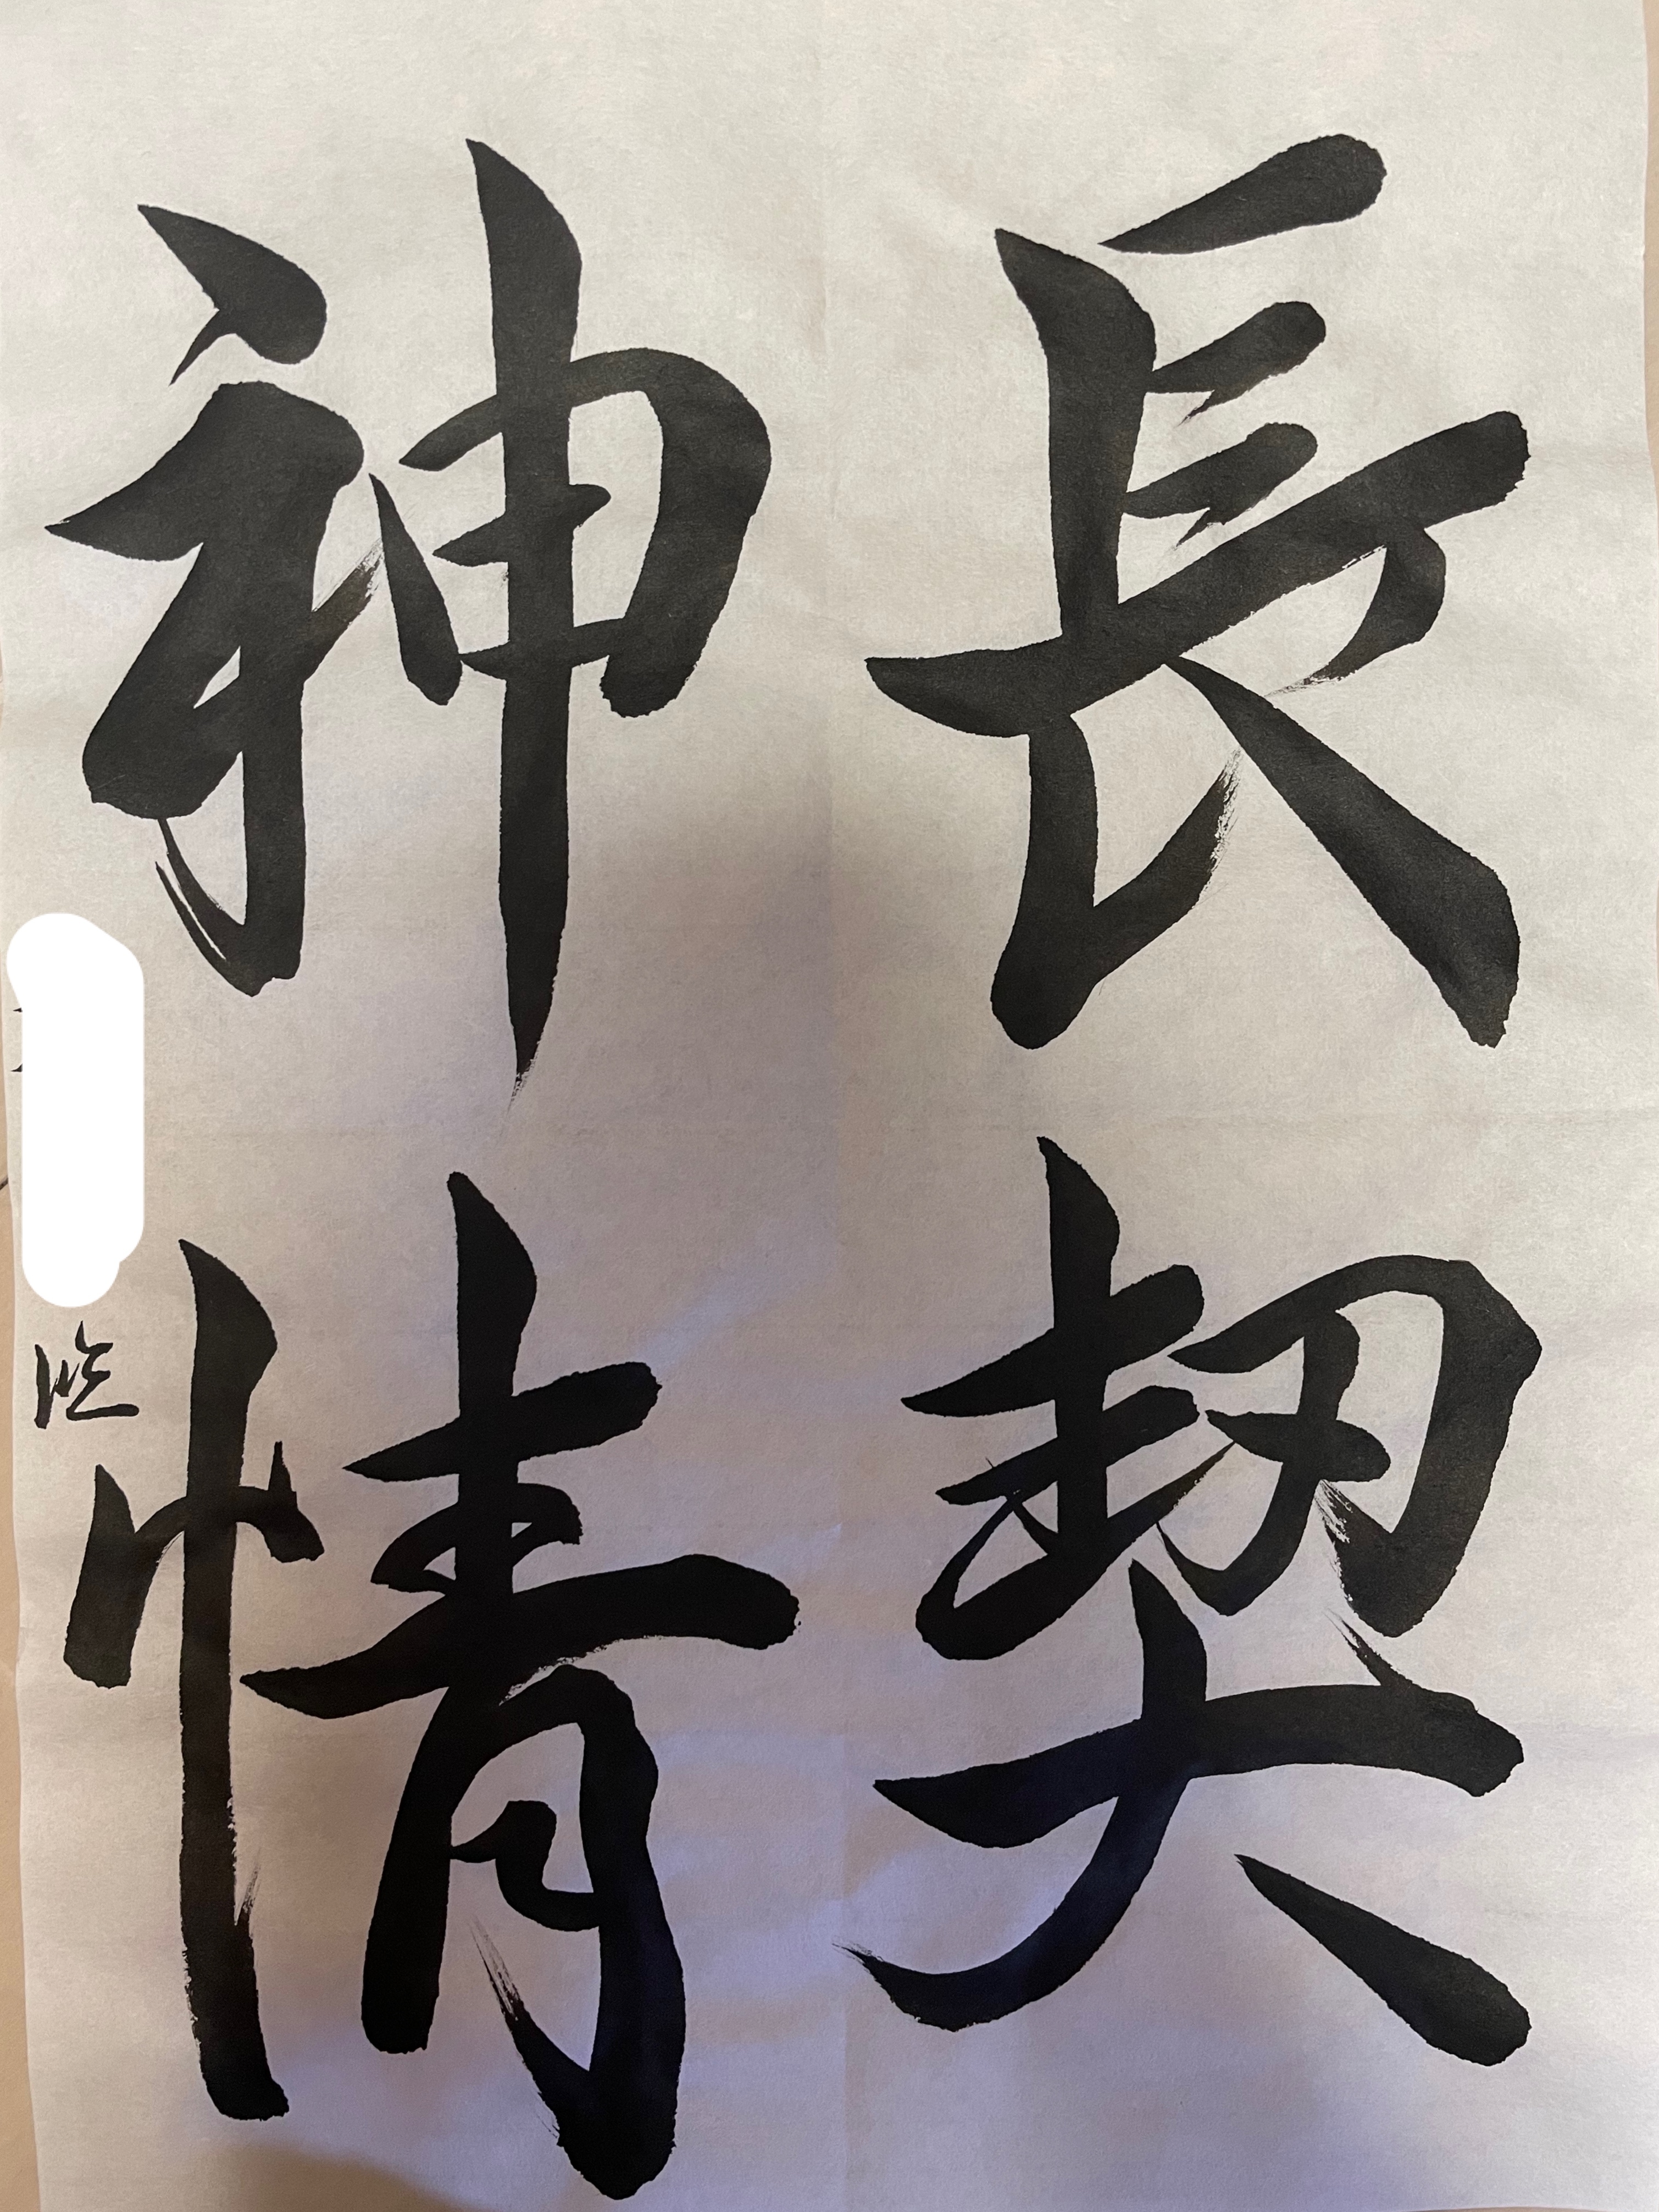 長契
神情
臨